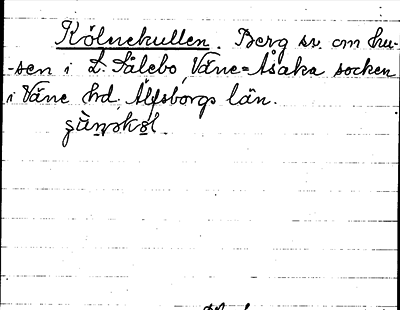 Kölnekullen. Berg sv. om hu-
-sen i L. Pålebo, Väne-Åsaka socken
i Väne hd, Älfsborgs län.